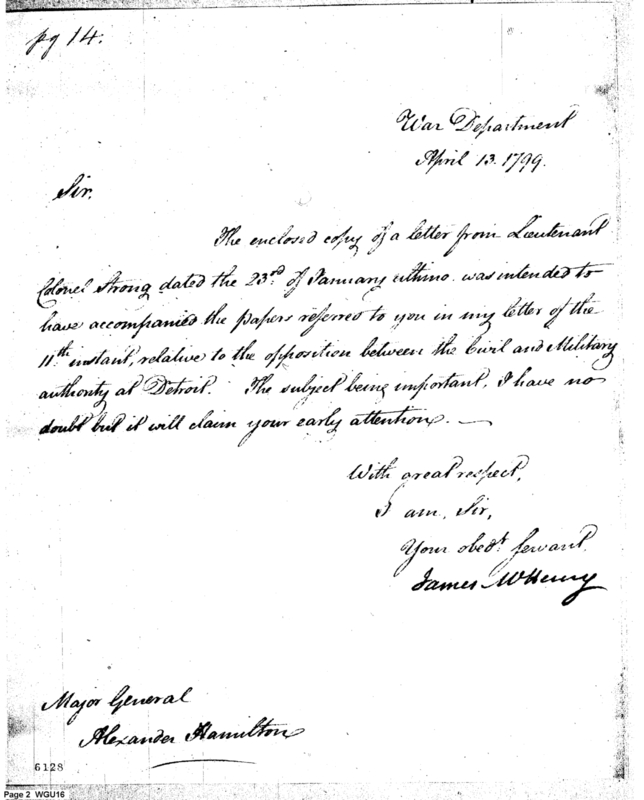 pg 14.
War Department
April 13. 1799.
Sir.
The enclosed copy of a letter from Lieutenant
Colonel Strong dated the 23rd. of January ultimo. was intended to
have accompanied the papers referred to you in my letter of the
11th instant, relative to the opposition between the Civil and Military
authority at Detroit. The subject being important, I have no
doubt but it will claim your early attention. —
With great respect,
I am, Sir,
Your obedt. servant.
James McHenry
Major General
Alexander Hamilton
6128
Page 2 WGU16